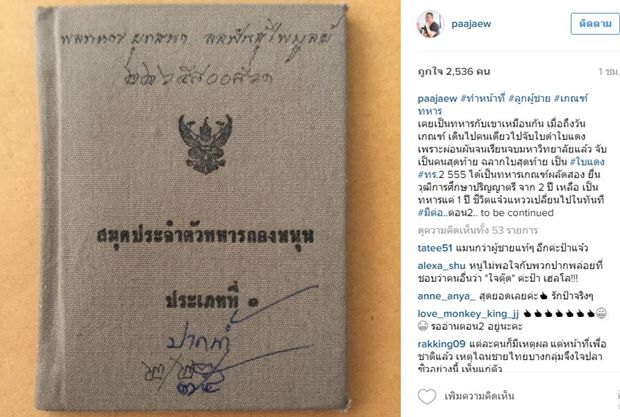 พลทหาร
สมุดประจำตัวทหารกองหนุน
ประเภทที่ ๑
paajaew
ติดตาม
ถูกใจ 2,536 คน
1 ชม.
paajaew #ทำหน้าที่ #ลูกผู้ชาย #เกณฑ์
ทหาร
เคยเป็นทหารกับเขาเหมือนกัน เมื่อถึงวัน
เกณฑ์ เดินไปคนเดียวไปจับใบดำใบแดง
เพราะผ่อนผันจนเรียนจบมหาวิทยาลัยแล้ว จับ
เป็นคนสุดท้าย ฉลากใบสุดท้าย เป็น #ใบแดง
#ทร.2 555 ได้เป็นทหารเกณฑ์ผลัดสอง ยื่น
วุฒิการศึกษาปริญญาตรี จาก 2 ปี เหลือ เป็น
ทหารแค่ 1 ปี ชีวิตแจ้วแหววเปลี่ยนไปในทันที
#มีต่อ..ตอน2.. to be continued
ดูความคิดเห็นทั้ง 53 รายการ
tatee51 แมนกว่าผู้ชายแท้ๆ อีกค่ะป้าแจ้ว
alexa_shu หนูไม่พอใจกับพวกปากพล่อยที่
ชอบว่าคนอื่นว่า "ใจตุ๊ด" ค่ะป้า เฮลโล!!!
anne_anya_ สุดยอดเลยค่ะ รักป้าจริงๆ
love_monkey_king_jj
รออ่านตอน2 อยู่นะคะ
rakking09 แต่ละคนก็มีเหตุผล แต่หน้าที่เพื่อ
ชาติแล้ว เหตุไฉนชายไทยบางกลุ่มจึงใจปลา
ซิวอย่างนี้ เห็นแก่ตัว
เพิ่มความคิดเห็น